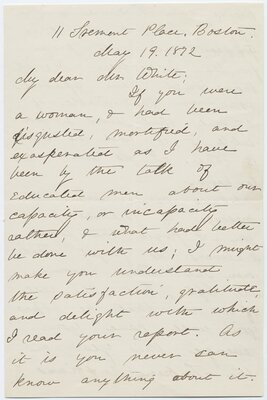 11 Tremont Place, Boston.
May 19. 1872
My dear Mr White;
If you were
a woman, & had been
disgusted, mortified, and
exasperated as I have
been by the talk of
educated men about our
capacity, or incapacity
rather, & what had better
be done with us; I might
make you understand
the satisfaction, gratitude,
and delight with which
I read your report. As
it is you never can
know anything about it.